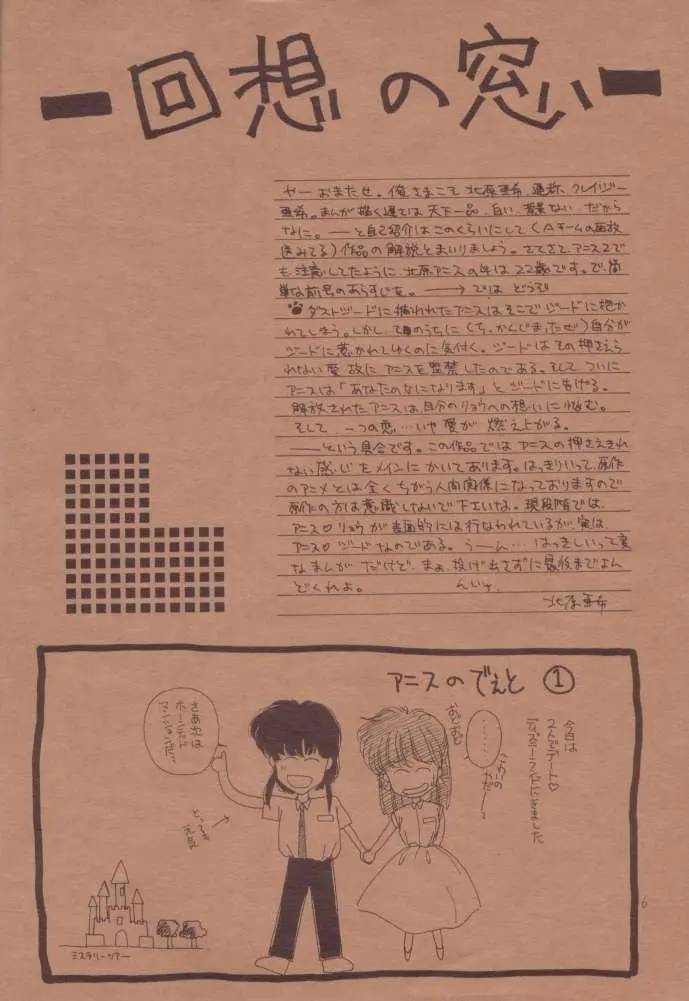 ー回想の窓ー
やー おまたせ。俺さまこそ 北原亜希、通称、クレイジー
亜希。まんが描く速さは天下一品、白い、背景ない、だから
なに。――と自己紹介はこのくらいにして(Aチームの再放
送みてる)作品の解説とまいりましょう。さてさて、アニス2で
も注意してたように、北原アニスの年は22歳です。で、簡
単な前号のあらすじを。――→ では どうぞ
ダストジードに捕われたアニスはそこでジードに抱か
れてしまう。しかし、そのうちに(ち、かんじまったぜ)自分が
ジードに惹かれてゆくのに気付く。ジードはその押さえら
れない愛故にアニスを監禁したのである。そして ついに
アニスは「あなたのなにになります」とジードに告げる。
解放されたアニスは、自分のリョウへの想いに悩む。
そして 一つの恋…いや愛が 燃え上がる。
――という具合です。この作品では アニスの押さえきれ
ない感心をメインにかいてあります。はっきりいって、原作
のアニメとは全くちがう人間関係になっておりますので
原作の方は意識しないで下さいな。現段階では、
アニス♡リョウが表面的には行なわれているが、実は、
アニス♡ジードなのである。うーん…はっきしいって変
なまんが だけど、まぁ、投げ出さずに最後までよん
どくれよ。
北原亜希
アニスのでぇと ①
今日は
2人でデート♡
ディズニーランドにきました
………
おどおど
さあ次は
ホーンテッド
マンションだっ
ミステリーツアー
6